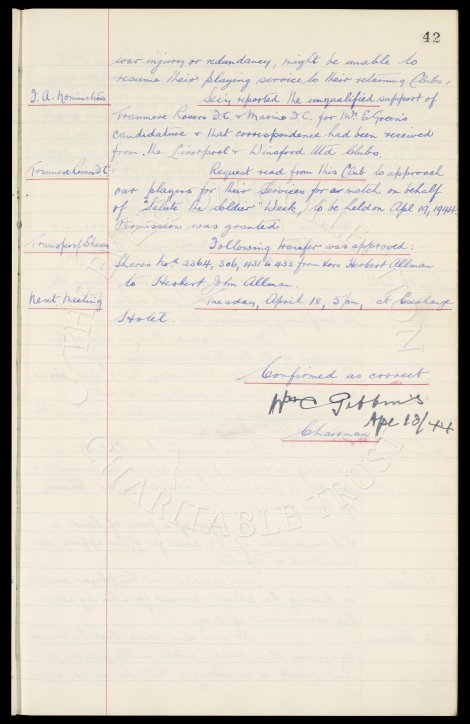 42
war injury or redundancy, might be unable to
resume their playing service to their retaining Clubs.
F.A. Nominations Secy reported the unqualified support of
Tranmere Rovers F.C. & Marine F.C. for Mr Green's
candidature & that correspondence had been received
from the Liverpool & Winsford Utd Clubs.
Tranmere Rovers F.C. Request recd from this Club to approach
our players for their Services for a match on behalf
of "Salute the Soldier" Week, to be held on Apl 19, 1944.
Permission was granted
Transfer of Shares Following transfer was approved:-
Shares Nos 2364, 306, 431 to 433 from Exors Herbert Allman
to Herbert John Allman.
Next Meeting Tuesday, April 18, 5 pm, at Exchange
Hotel.
Confirmed as correct
Wm C Gibbins
Apl 18/44
Chairman
CHARITABLE TRUST